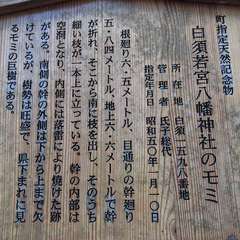 町指定天然記念物
白須若宮八幡神社のモミ
所在地 白須一五九八番地
管理者 氏子総代
指定年月日 昭和五〇年一月一〇日
根廻り六・五メートル、目通りの幹廻り
五・八四メートル、地上六・六メートルで幹
が折れ、そこから南に枝を出し、そのうち
細い枝が一本上に立っている。幹の内部は
空洞となり、内側には落雷により焼けた跡
がある。南側の幹の外側は下から上まで欠
けているが、樹勢は旺盛で、県下まれに見
るモミの巨樹である。